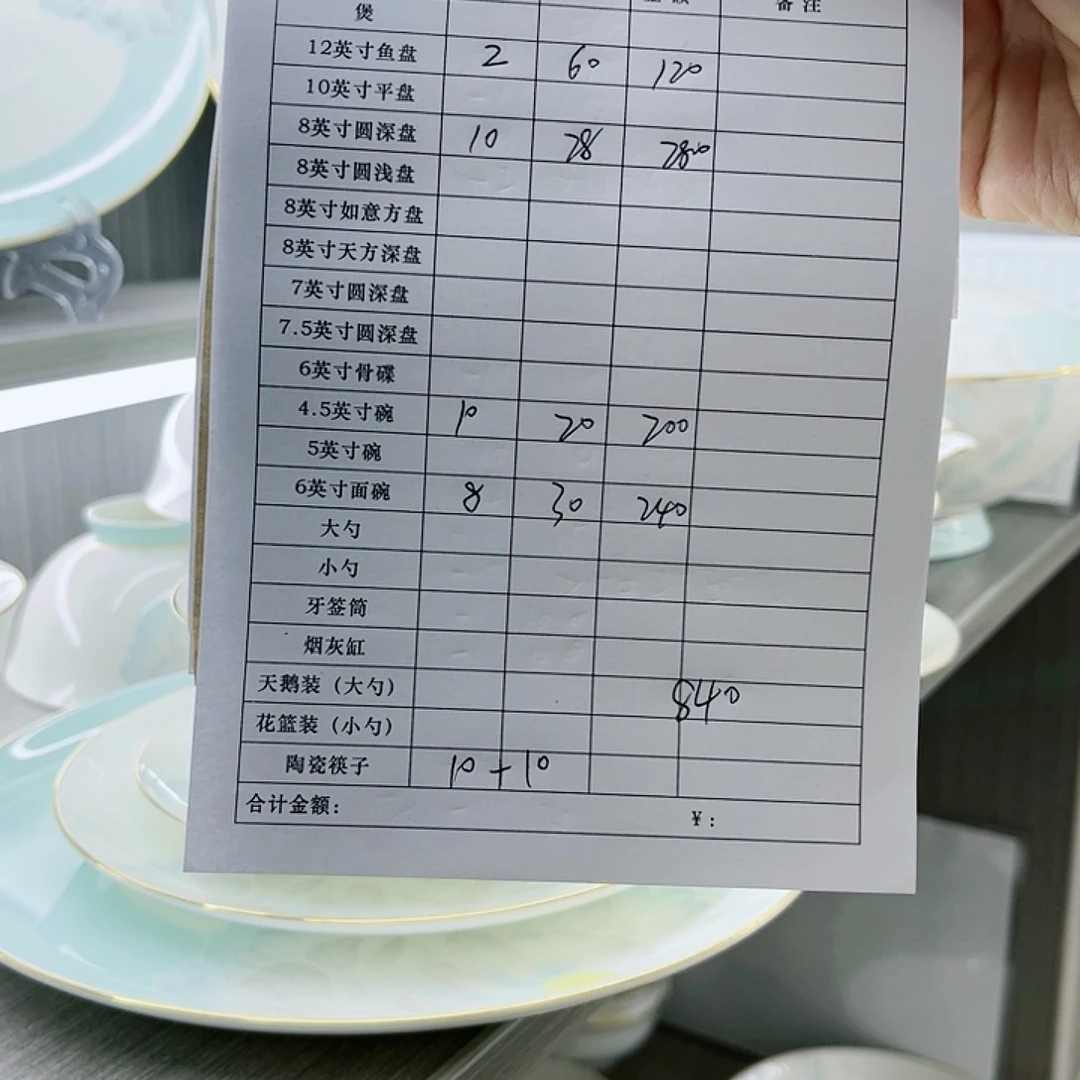 金额 备注
煲
12英寸鱼盘 2 60 120
10英寸平盘
8英寸圆深盘 10 28 280
8英寸圆浅盘
8英寸如意方盘
8英寸天方深盘
7英寸圆深盘
7.5英寸圆深盘
6英寸骨碟
4.5英寸碗 10 20 200
5英寸碗
6英寸面碗 8 30 240
大勺
小勺
牙签筒
烟灰缸
天鹅装（大勺） 840
花篮装（小勺）
陶瓷筷子 10+10
合计金额： ¥：